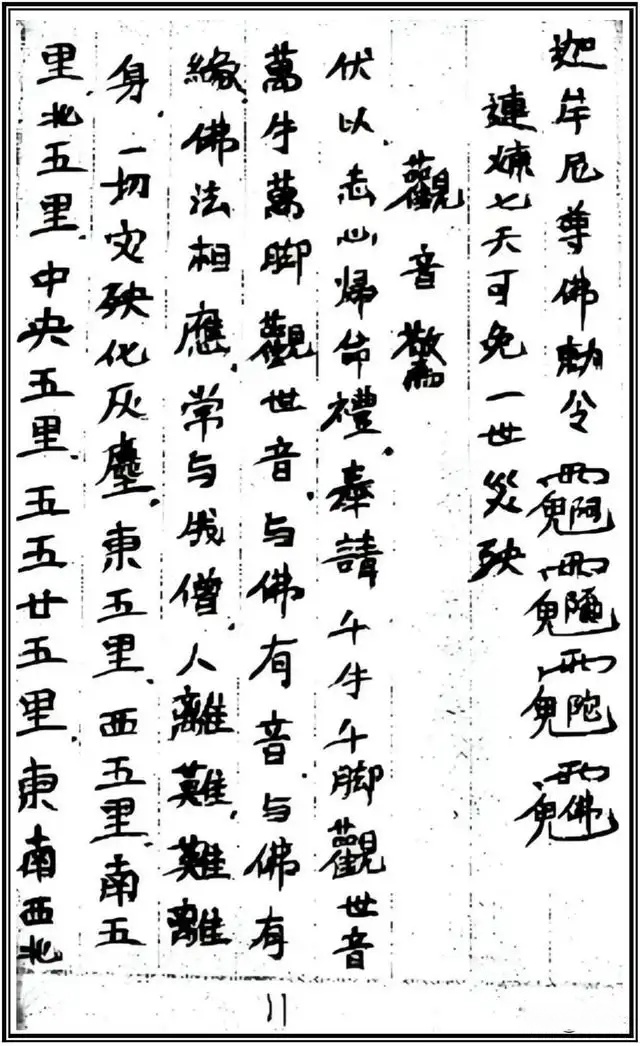 迦岸尼尊佛勅令
連七天可免一世災殃
觀音
伏以志心帰命禮.奉請千牛千脚觀世音
萬牛萬脚觀世音.与佛有音.与佛有
緣.佛法相應.常与我僧.人離難.難離
身.一切灾殃化灰塵.東五里.西五里.南五
里.北五里.中央五里.五五廿五里.東南西北
11